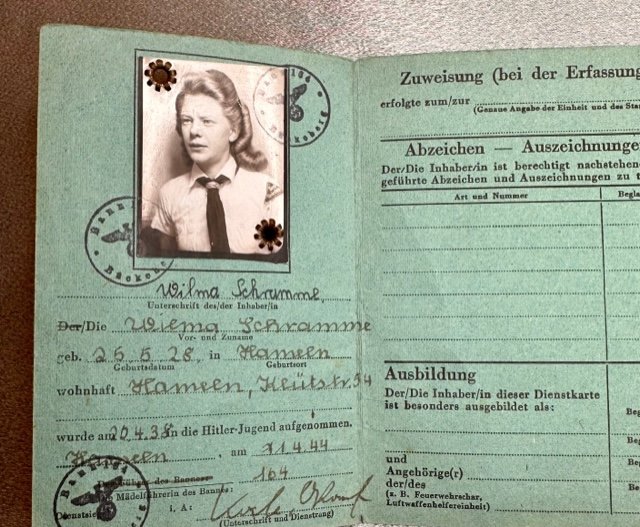 Bann 164
Bückeberg
Bann
Bückeberg
Wilma Schramme,
Unterschrift des/der Inhaber/in
Der/Die Wilma Schramme
Vor- und Zuname
geb. 25 5 28 in Hameln
Geburtsdatum Geburtsort
wohnhaft Hameln, Klütstr. 94
wurde am 20 4.38 in die Hitler-Jugend aufgenommen.
Hameln, am 21 4.44
Bannes 164
Mädelführerin des Bannes:
Dienstsie i. A:
(Unterschrift und Dienstrang)
Zuweisung (bei der Erfassung
erfolgte zum/zur
(Genaue Angabe der Einheit und des Sta
Abzeichen — Auszeichnunge
Der/Die Inhaber/in ist berechtigt nachstehen
geführte Abzeichen und Auszeichnungen zu t
Art und Nummer Begla
Ausbildung
Der/Die Inhaber/in dieser Dienstkarte
ist besonders ausgebildet als:
Beg
und
Angehörige(r)
der/des
(z. B. Feuerwehrschar,
Luftwaffenhelfereinheit)
Beg
Beg